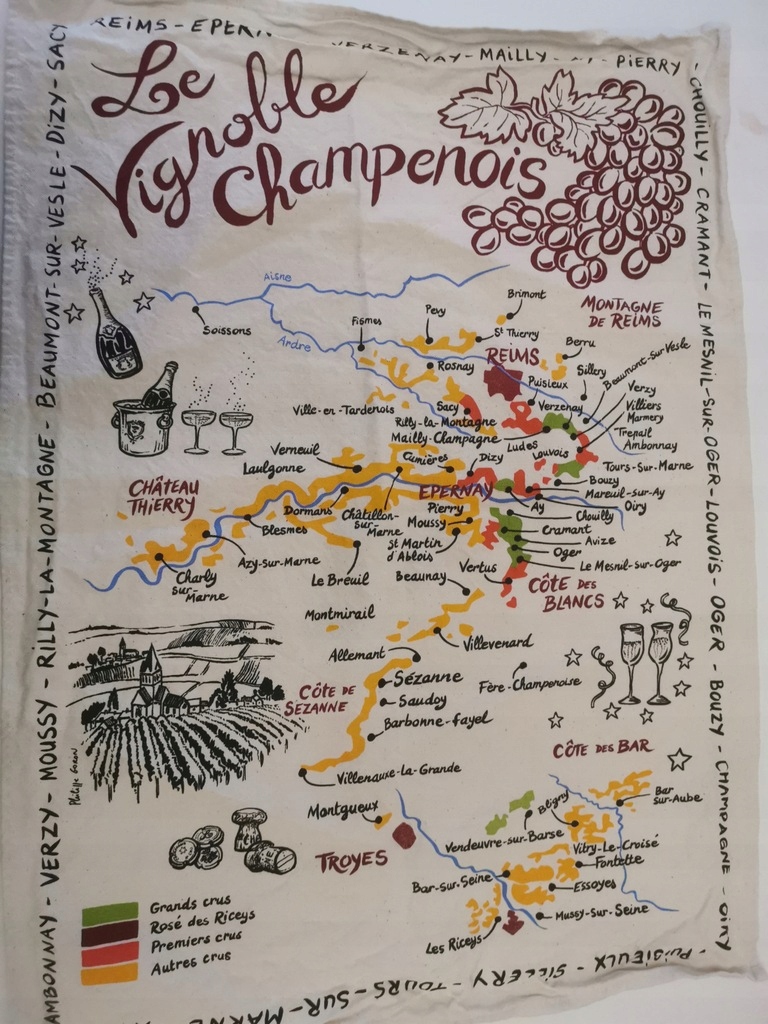 REIMS - EPERN
VERZENAY - MAILLY -
PIERRY
CHOUILLY - CRAMANT - LE MESNIL-SUR-OGER - LOUVOIS - OGER - BOUZY - CHAMPAGNE - OIRY
- PUISIEULX - SILLERY - TOURS-SUR-MARNE
AMBONNAY - VERZY - MOUSSY - RILLY-LA-MONTAGNE - BEAUMONT-SUR-VESLE - DIZY - SACY
Le
Vignoble
Champenois
Aisne
Soissons
Ardre
Fismes
Pevy
Brimont
St Thierry
MONTAGNE
DE REIMS
REIMS
Berru
Rosnay
Sillery
Beaumont-sur-Vesle
Puisieux
Verzy
Ville-en-Tardenois
Sacy
Verzenay
Villiers
Marmery
Rilly-la-Montagne
Mailly-Champagne
Ludes
Trepail
Ambonnay
Louvois
Verneuil
Cumières
Dizy
Laulgonne
Tours-sur-Marne
CHÂTEAU
THIERRY
EPERNAY
Bouzy
Mareuil-sur-Ay
Dormans
Châtillon-
sur-
Marne
Pierry
Ay
Oiry
Chouilly
Blesmes
Moussy
Cramant
St Martin
d'Ablois
Avize
Oger
Azy-sur-Marne
Le Breuil
Vertus
Le Mesnil-sur-Oger
Charly
sur-
Marne
Beaunay
CÔTE DES
BLANCS
Montmirail
Villevenard
Allemant
Sézanne
Fère-Champenoise
CÔTE DE
SEZANNE
Saudoy
Barbonne-fayel
Villenauxe-La-Grande
CÔTE DES BAR
Philippe Goron
Montgueux
Bligny
Bar
sur-Aube
Vendeuvre-sur-Barse
TROYES
Vitry-Le-Croisé
Fontette
Bar-sur-Seine
Essoyes
Mussy-sur-Seine
Les Riceys
Grands crus
Rosé des Riceys
Premiers crus
Autres crus